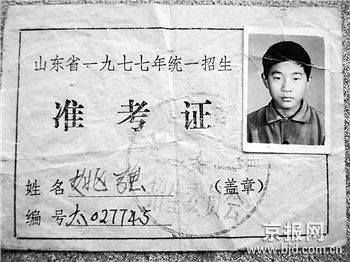 山东省一九七七年统一招生
准考证
姓名 姚强
(盖章)
编号 太027745
委员会
京报网
www.bjd.com.cn